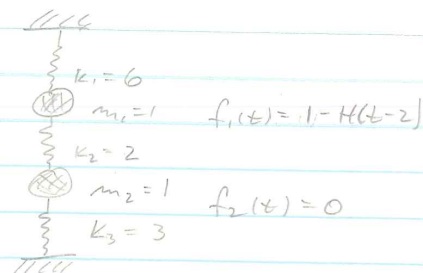 k₁ = 6
m₁ = 1
f₁(t) = 1 - H(t-2)
k₂ = 2
m₂ = 1
f₂(t) = 0
k₃ = 3